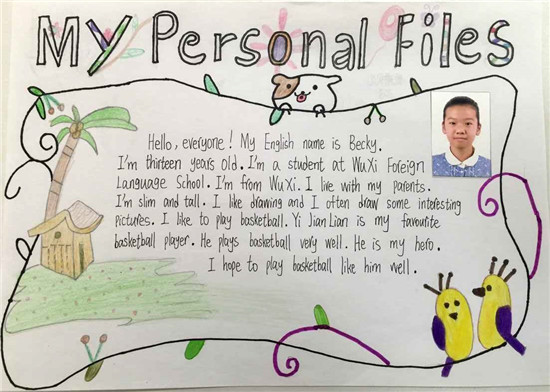 My Personal Files
Hello, everyone! My English name is Becky.
I'm thirteen years old. I'm a student at WuXi Foreign
Language School. I'm from WuXi. I live with my parents.
I'm slim and tall. I like drawing and I often draw some interesting
pictures. I like to play basketball. Yi JianLian is my favourite
basketball player. He plays basketball very well. He is my hero.
I hope to play basketball like him well.